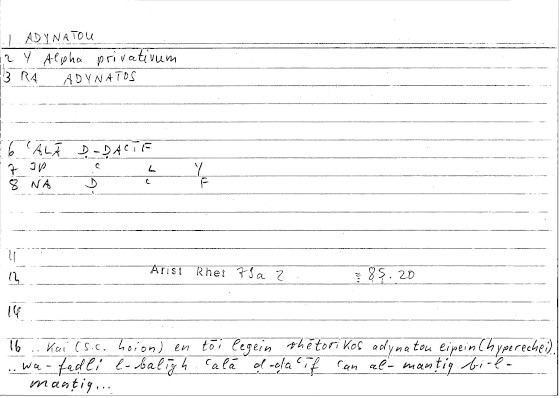 1 ADYNATOU
2 Y Alpha privativum
3 RA ADYNATOS
6 ʿALĀ Ḍ-ḌAʿĪF
7 JP ʿ L Y
8 NA Ḍ ʿ F
11
12 Arist Rhet 71a 2 = 85.20
14
16 ..kai (s.c. hoion) en tōi legein rhētorikos adynatou eipein (hyperechei).
..wa-faḍli l-balīgh ʿalā ḍ-ḍaʿīf ʿan al-manṭiq bi-l-
manṭiq...